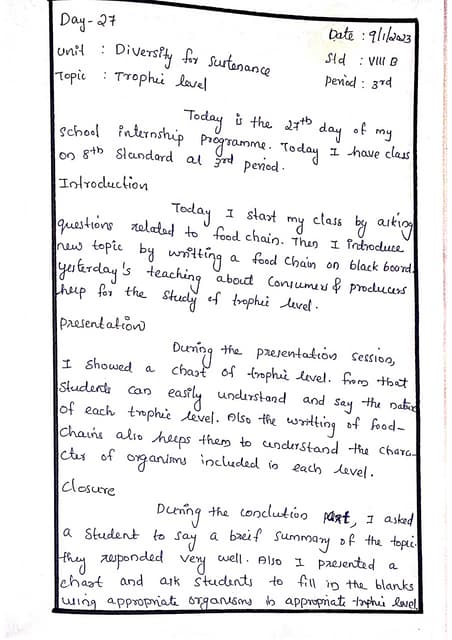 Day-27
Date : 9/1/2023
Unit : Diversity for Sustenance
Std : VIII B
Topic : Trophic level
Period : 3rd
Today is the 27th day of my
School internship programme. Today I have class
on 8th Standard at 3rd period.
Introduction
Today I start my class by asking
questions related to food chain. Then I introduce
new topic by writting a food chain on black board.
Yesterday's teaching about Consumers & producers
help for the study of trophic level.
Presentation
During the presentation session,
I showed a chart of trophic level. from that
Students can easily understand and say the nature
of each trophic level. Also the writting of food-
chains also helps them to understand the chara-
cter of organisms included in each level.
Closure
During the conclution part, I asked
a student to say a breif summary of the topic.
they responded very well. Also I presented a
chart and ask students to fill in the blanks
using appropriate organisms in appropriate trophic level